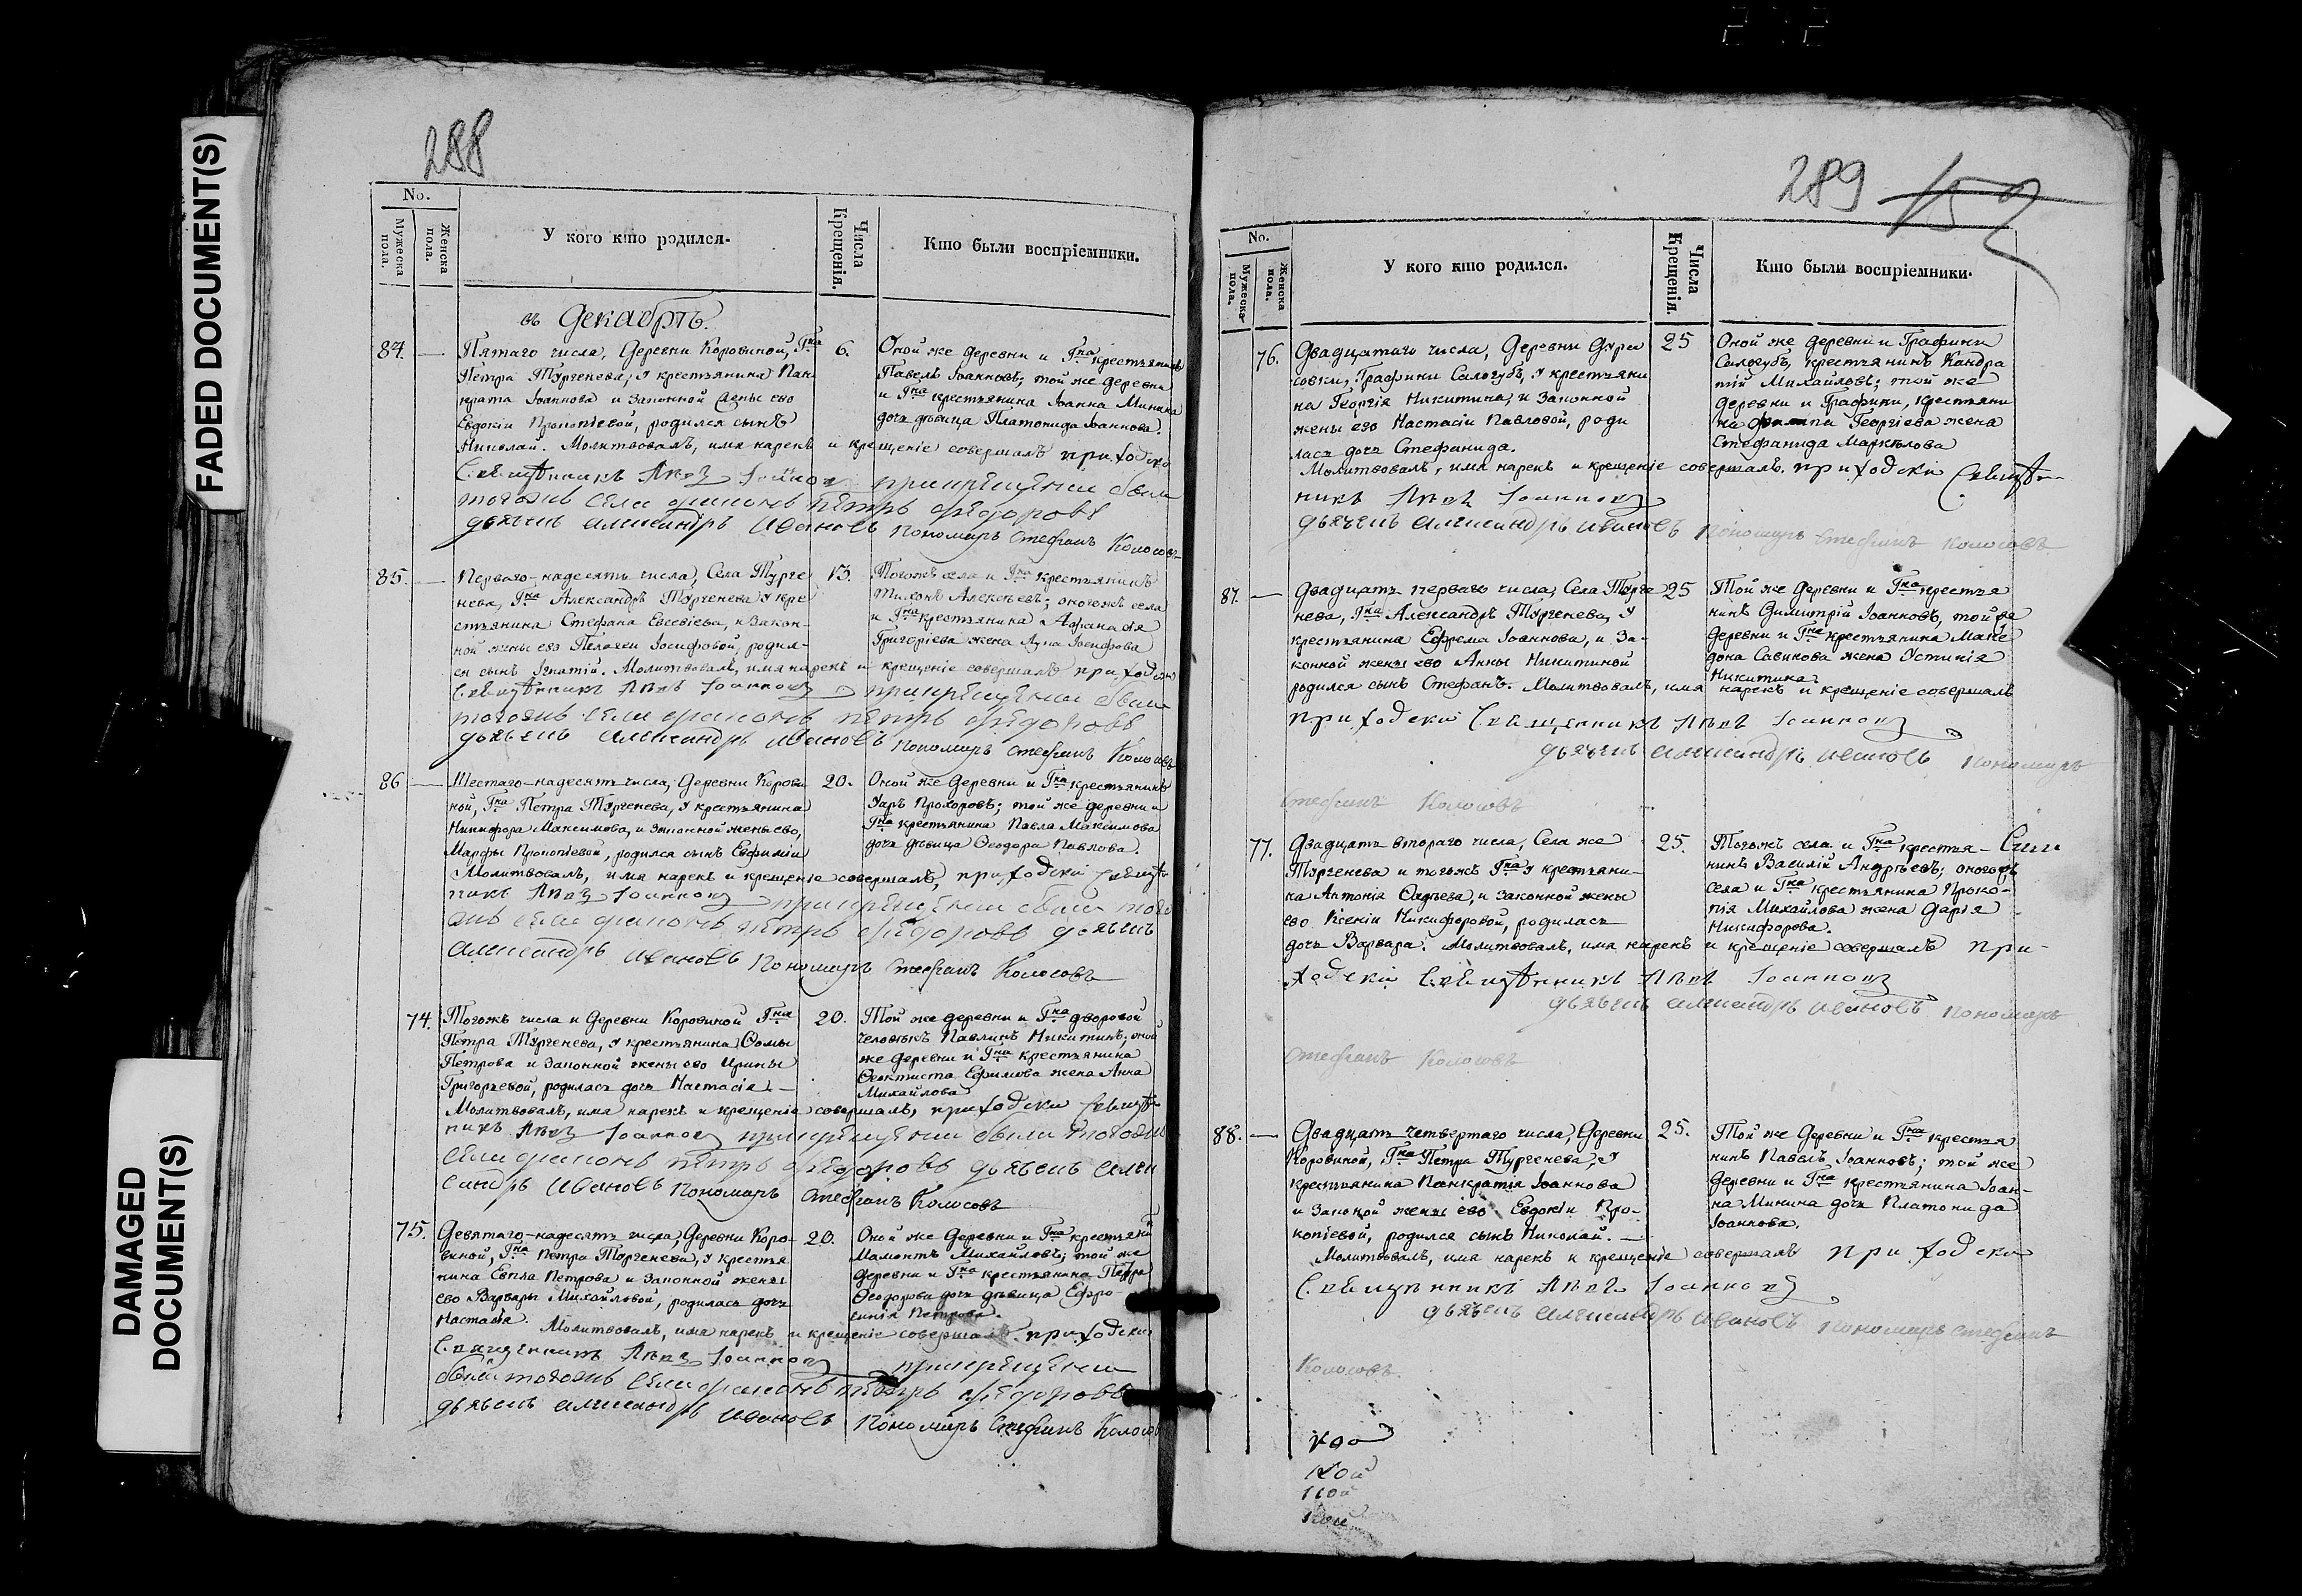 FADED DOCUMENT(S)
DAMAGED
DOCUMENT(S)
288
No.
Мужеска пола.
Женска пола.
У кого кто родился.
Числа Крещенія.
Кто были воспріемники.
въ Декабрѣ.
84.
Пятаго числа, Деревни Коровиной, Гна
Петра Тургенева, у крестьянина Пан
крата Іоаннова и законной жены его
Евдокіи Прокопіевой, родился сынъ
Николай. Молитвовалъ, имя нарекъ и крещеніе совершалъ приходско
Священникъ Левъ Іоанновъ при крещеніи были
тогожъ села діаконъ Петръ Федоровъ
дьячекъ Александръ Ивановъ пономарь Стефанъ Колосовъ
6.
Оной же деревни и Гна крестьянинъ
Павелъ Іоанновъ; той же деревни
и Гна крестьянина Іоанна Минина
дочь дѣвица Платонида Іоаннова.
85.
Перваго-надесять числа, Села Турге
нева, Гна Александръ Тургенева у кре
стьянина Стефана Евсевіева, и закон-
ной жены его Пелагеи Іосифовой, родил-
ся сынъ Игнатій. Молитвовалъ, имя нарекъ и крещеніе совершалъ приходско
Священникъ Левъ Іоанновъ при крещеніи были
тогожъ села діаконъ Петръ Федоровъ
дьячекъ Александръ Ивановъ пономарь Стефанъ Колосовъ
13.
Тогожъ села и Гна крестьянинъ
Тихонъ Алексѣевъ; оногожъ села
и Гна крестьянина Афанасія
Григоріева жена Анна Іосифова
86
Шестаго-надесять числа, Деревни Корови
ной, Гна Петра Тургенева, у крестьянина
Никифора Максимова, и законной жены его,
Марфы Прокопіевой, родился сынъ Евфимій
Молитвовалъ, имя нарекъ и крещеніе совершалъ, приходскій священ
никъ Левъ Іоанновъ при крещеніи были того
жъ села діаконъ Петръ Федоровъ дьячекъ
Александръ Ивановъ пономарь Стефанъ Колосовъ
20.
Оной же деревни и Гна крестьянинъ
Уаръ Прохоровъ; той же деревни и
Гна крестьянина Павла Максимова
дочь дѣвица Ѳеодора Павлова.
74.
Тогожъ числа и Деревни Коровиной Гна
Петра Тургенева, у крестьянина Ѳомы
Петрова и законной жены его Ирины
Григорьевой, родилась дочь Настасія.
Молитвовалъ, имя нарекъ и крещеніе совершалъ, приходски священ
никъ Левъ Іоанновъ при крещеніи были тогожъ
села діаконъ Петръ Федоровъ дьячекъ Алек
сандръ Ивановъ пономарь Стефанъ Колосовъ
20.
Той же деревни и Гна дворовой
человѣкъ Павлинъ Никитинъ, оной
же деревни и Гна крестьянина
Ѳеоктиста Ефимова жена Анна
Михайлова
75.
Девятаго-надесять числа, Деревни Коро-
виной, Гна Петра Тургенева, у крестья
нина Евпла Петрова и законной жены
его Варвары Михайловой, родилась дочь
Настасія. Молитвовалъ, имя нарекъ и крещеніе совершалъ приходски
Священникъ Левъ Іоанновъ при крещеніи
были тогожъ села діаконъ Петръ Федоровъ
дьячекъ Александръ Ивановъ пономарь Стефанъ Колосов
20.
Оной же деревни и Гна крестьяни
Мамонтъ Михайловъ; той же
деревни и Гна крестьянина Петра
Ѳеодорова дочь дѣвица Ефро-
синія Петрова.
289 152
No.
Мужеска пола.
Женска пола.
У кого кто родился.
Числа Крещенія.
Кто были воспріемники.
76.
Двадцатаго числа, Деревни Дура
совки, Графини Сологубъ, у крестьяни
на Георгія Никитина, и законной
жены его Настасіи Павловой, роди
лась дочь Стефанида.
Молитвовалъ, имя нарекъ и крещеніе совершалъ. приходски Священ
никъ Левъ Іоанновъ
дьячекъ Александръ Ивановъ пономарь Стефанъ Колосовъ
25
Оной же деревни и Графини
Сологубъ, крестьянинъ Кандра
тій Михайловъ; той же
деревни и Графини, крестьяни
на Георгіева жена
Стефанида Маркѣлова
87.
Двадцать перваго числа, Села Турге
нева, Гна Александръ Тургенева, у
крестьянина Ефрема Іоаннова, и за-
конной жены его Анны Никитиной
родился сынъ Стефанъ. Молитвовалъ, имя нарекъ и крещеніе совершалъ
приходски Священникъ Левъ Іоанновъ
дьячекъ Александръ Ивановъ пономарь
Стефанъ Колосовъ
25
Той же деревни и Гна крестья
нинъ Димитрій Іоанновъ, той же
деревни и Гна крестьянина Маке
дона Савинова жена Устинія
Никитина.
77.
Двадцать втораго числа, Села же
Тургенева и тогожъ Гна у крестьяни-
на Антонія Ѳадѣева, и законной жены
его Ксеніи Никифоровой, родилась
дочь Варвара. Молитвовалъ, имя нарекъ и крещеніе совершалъ при-
ходскій Священникъ Левъ Іоанновъ
дьячекъ Александръ Ивановъ пономарь
Стефанъ Колосовъ
25.
Тогожъ села и Гна крестья-
нинъ Василій Андрѣевъ; оногожъ
села и Гна крестьянина Проко-
пія Михайлова жена Дарія
Никифорова.
88.
Двадцать четвертаго числа, Деревни
Коровиной, Гна Петра Тургенева, у
крестьянина Панкратія Іоаннова
и законой жены его Евдокіи Про-
копіевой, родился сынъ Николай.
Молитвовалъ, имя нарекъ и крещеніе совершалъ приходски
Священникъ Левъ Іоанновъ
дьячекъ Александръ Ивановъ пономарь Стефанъ
Колосовъ
25.
Той же деревни и Гна крестья
нинъ Павелъ Іоанновъ; той же
деревни и Гна крестьянина Іоан-
на Минина дочь Платонида
Іоаннова.